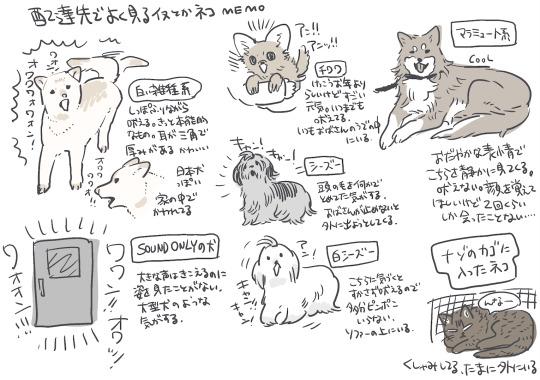 配達先でよく見るイヌとかネコMEMO
ワオン!
オワワワォワォン!
白い雑種系
しっぽふりながら
吠える。きっと本能的
なもの。耳が三角で
厚みがある かわいい
オワワォ!!
日本犬
っぽい
家の中で
かわれてる
アン!!
アンッ!!
チワワ
けっこうお年より
らしいけどすごい
元気。いつまでも
吠えてる。
いつもおばさんのうでの中
にいる。
マラミュート系
COOL
おだやかな表情で
こちらを静かに見てくる。
吠えない。顔を覚えて
ほしいけど2回くらい
しか会ったことない…
キャン!
キャン!
シーズー
頭の毛を何かで
とめてた気がする。
おばさんが止めないと
外に出ようとしてくる。
SOUND ONLYの犬
大きな声はきこえるのに
姿を見たことがない。
大型犬のような
気がする。
ワワン!!
オワッ!!
ワオォン!!
白シーズー
アン!
キャン
キャン!
こちらに気づくと
すかさず吠えるので
多分ピンポン
いらない。
ソファーの上にいる。
ナゾのカゴに
入ったネコ
んなー
くしゃみしてる。たまに外にいる